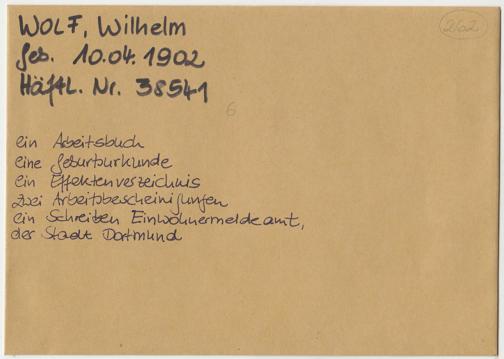 WOLF, Wilhelm
geb. 10.04.1902
Häftl. Nr. 38541
262
6
ein Arbeitsbuch
eine Geburturkunde
ein Effektenverzeichnis
zwei Arbeitsbescheinigungen
ein Schreiben Einwohnermeldeamt,
der Stadt Dortmund